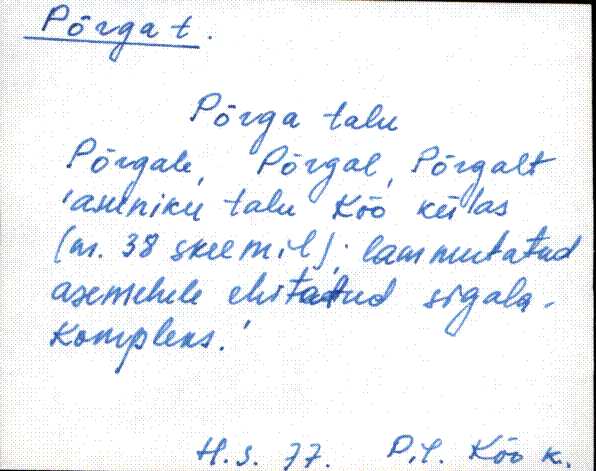 Põrga t.
Põrga talu
Põrgale, Põrgal, Põrgalt
'asuniku talu Köo külas
(nr. 38 skeemil); lammutatud
asemekele ehitatud sigala-
kompleks.'
H.S. 77. Pil. Kõo k.